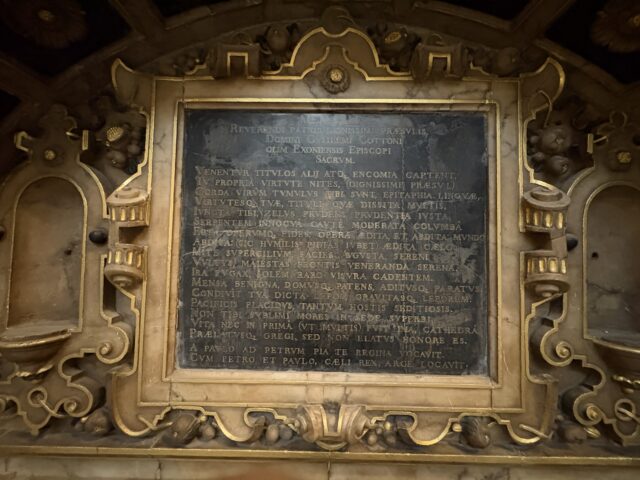 REVERENDI PATRIS DIGNISSIMI PRÆSVLIS
DOMINI GVLIELMI COTTONI
OLIM EXONIENSIS EPISCOPI
SACRVM.
VENENTVR TITVLOS ALII ATQ. ENCOMIA CAPTENT.
TV PROPRIA VIRTVTE NITES, (DIGNISSIME PRÆSVL)
CORDA VIRVM TVMVLVS TIBI SVNT, EPITAPHIA LINGVÆ,
VIRTVTESQ. TVÆ, TITVLI, QVÆ DISSITA MVLTIS,
IVNCTA TIBI, ZELVS PRVDENS, PRVDENTIA IVSTA,
SERPENTEM INNOCVA CAVTE MODERATA COLVMBA
EST INTERNO, FIDES OPERE ÆDITA, ET ABDITA MVNDO
ABDITA, SIC HVMILIS PIETAS IVBET; ÆDITA CÆLO.
MITE SVPERCILIVM, FACIES AVGVSTA, SERENI
VVLTVS MAIESTAS, FRONTIS VENERANDA SERENA,
IRA FVGAX, SOLEM RARO VISVRA CADENTEM.
MENSA BENIGNA, DOMVSQ. PATENS, ADITVSQ. PARATVS
CONDIVIT TVA DICTA LEPOR, GRAVITASQ. LEPOREM.
PACIFICIS PLACIDVS, TANTVM HOSTIS SEDITIOSIS.
NON TIBI SVBLIMI MORES IN SEDE SVPERBI
VITA NEC IN PRIMA (VT MVLTIS) FVIT VNA CATHEDRA
PRÆLATVSQ. GREGI, SED NON ELATVS HONORE ES.
A PAVLO AD PETRVM PIA TE REGINA VOCAVIT.
CVM PETRO ET PAVLO, CÆLI REX ARCE LOCAVIT.